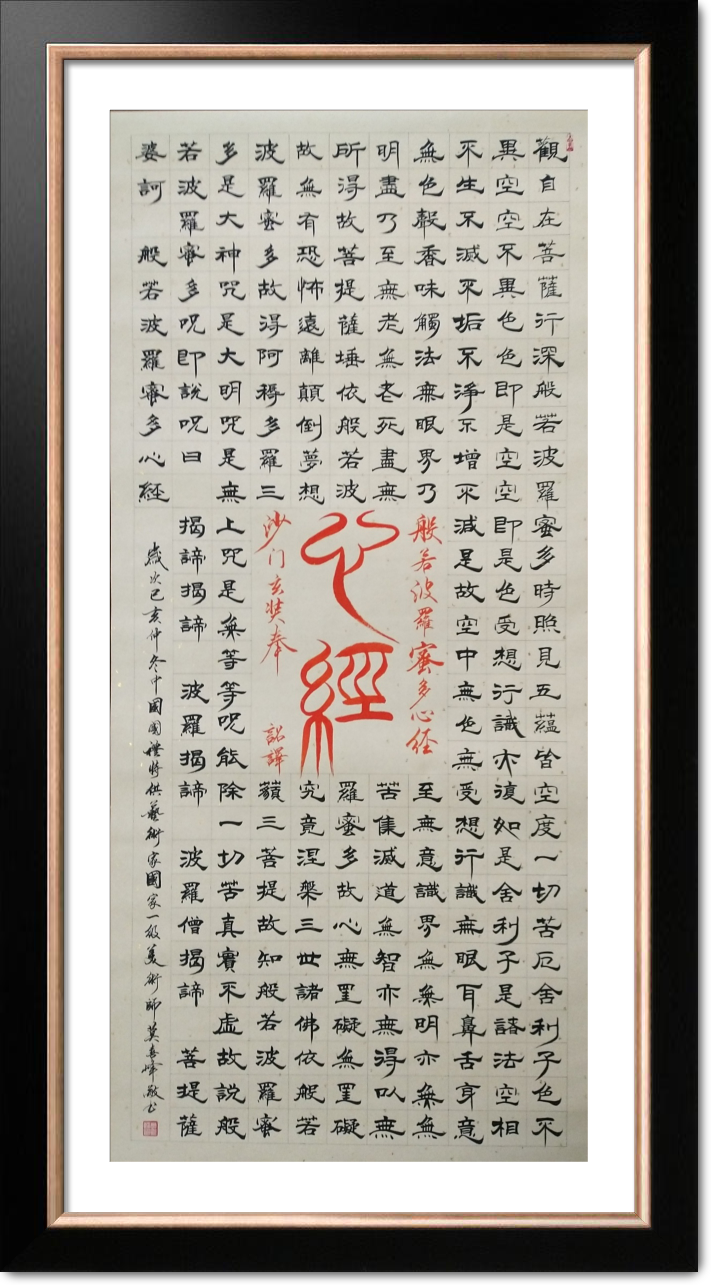 觀自在菩薩行深般若波羅蜜多時照見五蘊皆空度一切苦厄舍利子色不
異空空不異色色即是空空即是色受想行識亦復如是舍利子是諸法空相
不生不滅不垢不淨不增不減是故空中無色無受想行識無眼耳鼻舌身意
無色聲香味觸法無眼界乃
般若波羅蜜多心经
至無意識界無無明亦無無
明盡乃至無老無老死盡無
苦集滅道無智亦無得以無
所得故菩提薩埵依般若波
心經
羅蜜多故心無罣礙無罣礙
故無有恐怖遠離顛倒夢想
究竟涅槃三世諸佛依般若
波羅蜜多故得阿耨多羅三
沙门玄奘奉 詔譯
藐三菩提故知般若波羅蜜
多是大神咒是大明咒是無上咒是無等等呪能除一切苦真實不虛故說般
若波羅蜜多呪即說呪曰 揭諦揭諦 波羅揭諦 波羅僧揭諦 菩提薩
婆訶 般若波羅蜜多心經
歲次己亥仲冬中國國禮特供藝術家國家一級美術師莫喜峰敬書